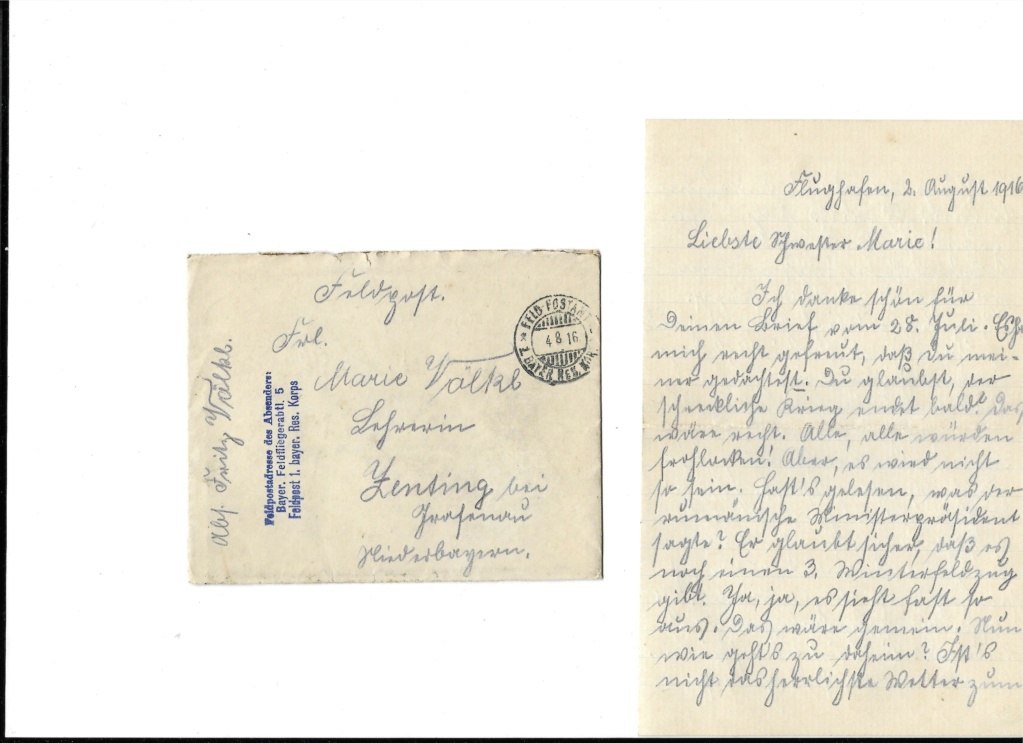 Feldpost.
Frl.
Marie Völkl
Lehrerin
Zenting bei
Grafenau
Niederbayern.
Abs. Fritz Völkl.
Feldpostadresse des Absenders:
Bayer. Feldfliegerabtl. 5
Feldpost 1. bayer. Res. Korps
FELD-POSTA
4 8 16.
BAYER RES.
Flughafen, 2. August 1916
Liebste Schwester Marie!
Ich danke schön für
Deinen Brief vom 28. Juli. Es
mich recht gefreut, daß Du mei-
ner gedachtest. Du glaubst, der
schreckliche Krieg endet bald? Das
wäre recht. Alle, alle würden
frohlocken! Aber, es wird nicht
so sein. Hast's gelesen, was der
rumänische Ministerpräsident
sagte? Er glaubt sicher, daß es
noch einen 3. Winterfeldzug
gibt. Ja, ja, es sieht fast so
aus. Das wäre gemein. Nun
wie geht's zu daheim? Ist's
nicht das herrlichste Wetter zum